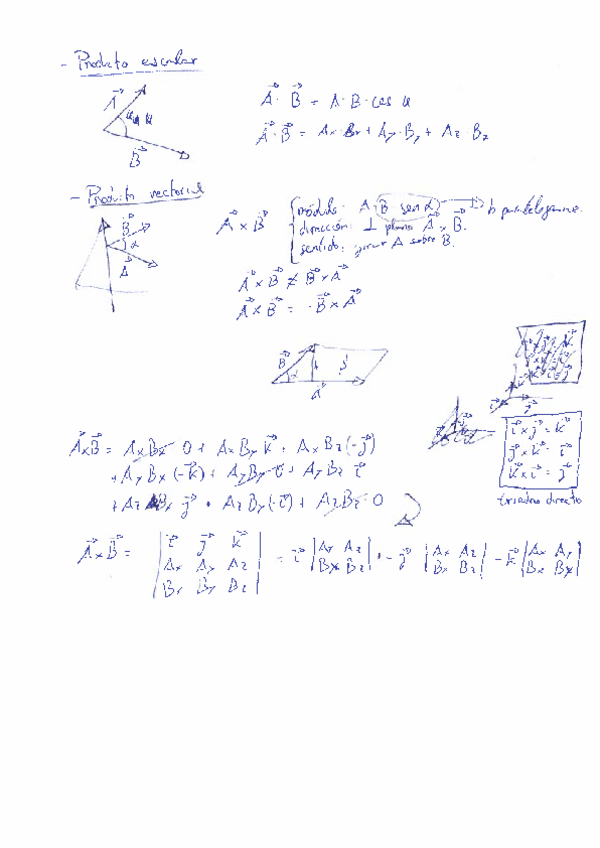 - Producto escalar
A⃗ · B⃗ = A · B · cos α
A⃗ · B⃗ = Ax · Bx + Ay · By + Az · Bz
A⃗
B⃗
- Producto vectorial
A⃗ × B⃗
módulo: A B sen α → h paralelogramo.
dirección: ⊥ plano A⃗ y B⃗.
sentido: girar A sobre B.
B⃗
α
A⃗
A⃗ × B⃗ ≠ B⃗ × A⃗
A⃗ × B⃗ = -B⃗ × A⃗
B⃗
α
h
S
a⃗
i⃗ × j⃗ = k⃗
j⃗ × k⃗ = i⃗
k⃗ × i⃗ = j⃗
triedro directo
A⃗×B⃗ = AxBx 0 + AxBy k⃗ + AxBz(-j⃗)
+ AyBx(-k⃗) + AyBy 0 + AyBz i⃗
+ Az Bx j⃗ + AzBy(-i⃗) + AzBz 0
A⃗×B⃗ = | i⃗ j⃗ k⃗ | = i⃗ | Ay Az | - j⃗ | Ax Az | - k⃗ | Ax Ay |
| Ax Ay Az | | By Bz | | Bx Bz | | Bx By |
| Bx By Bz |